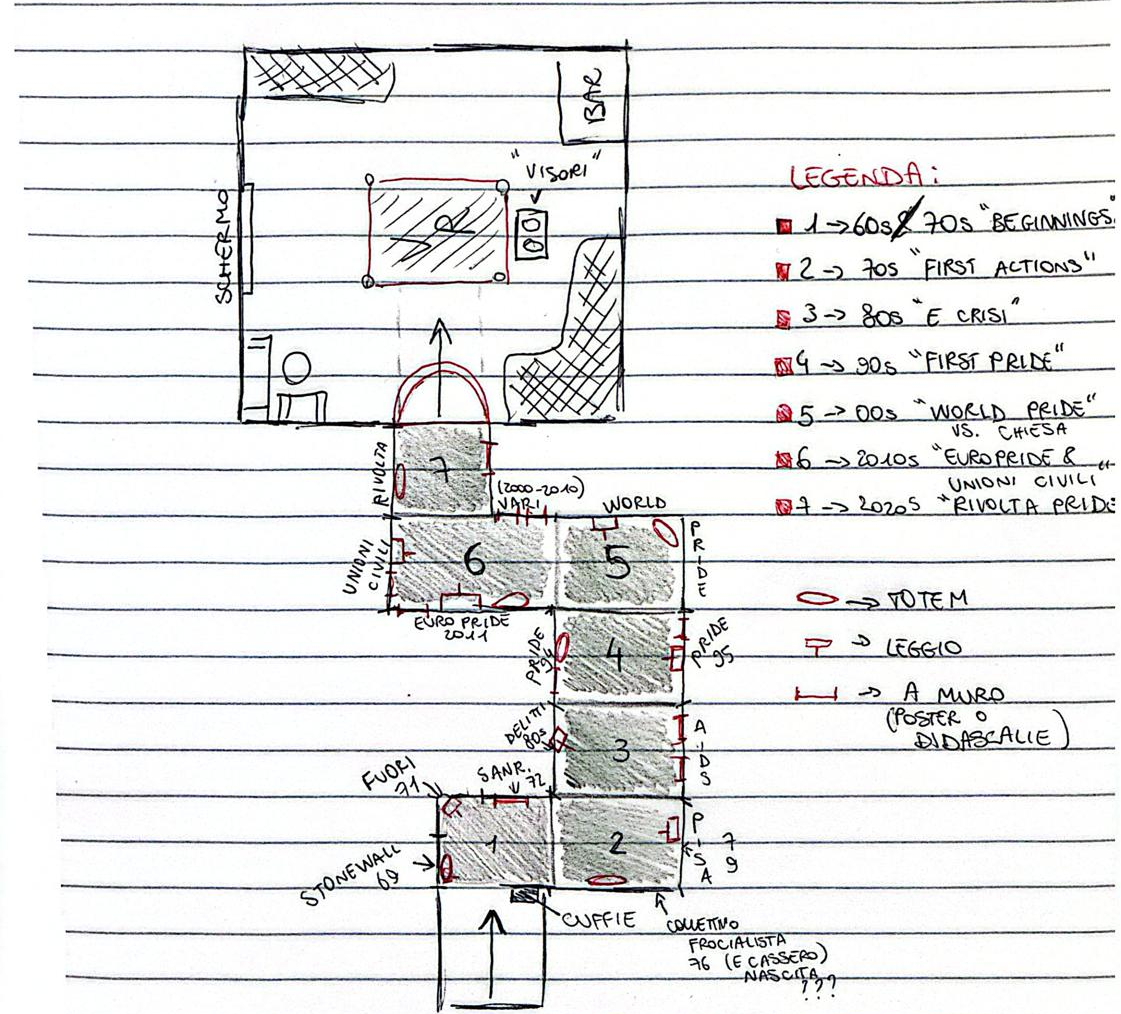 BAR
"VISORI"
VR
SCHERMO
LEGENDA:
1 → 60s 70s "BEGINNINGS"
2 → 70s "FIRST ACTIONS"
3 → 80s "E CRISI"
4 → 90s "FIRST PRIDE"
5 → 00s "WORLD PRIDE"
VS. CHIESA
6 → 2010s "EUROPRIDE &
UNIONI CIVILI"
7 → 2020s "RIVOLTA PRIDE
→ TOTEM
→ LEGGIO
→ A MURO
(POSTER O
DIDASCALIE)
RIVOLTA
7
(2000-2010)
VARI
WORLD
PRIDE
UNIONI
CIVILI
6
5
EURO PRIDE
2011
PRIDE
94
4
PRIDE
95
DELITTI
80s
3
AIDS
FUORI
71
SANR.
72
1
2
PISA
79
STONEWALL
69
CUFFIE
COLLETTIVO
FROCIALISTA
76 (E CASSERO)
NASCITA
???